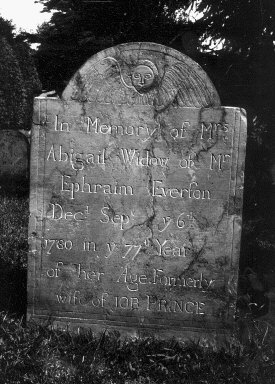 In Memory of Mrs
Abigail Widow of Mr
Ephraim Everson
Decd Sept ye 6th
1780 in ye 77th Year
of her Age Formerly
wife of IOB PRINCE